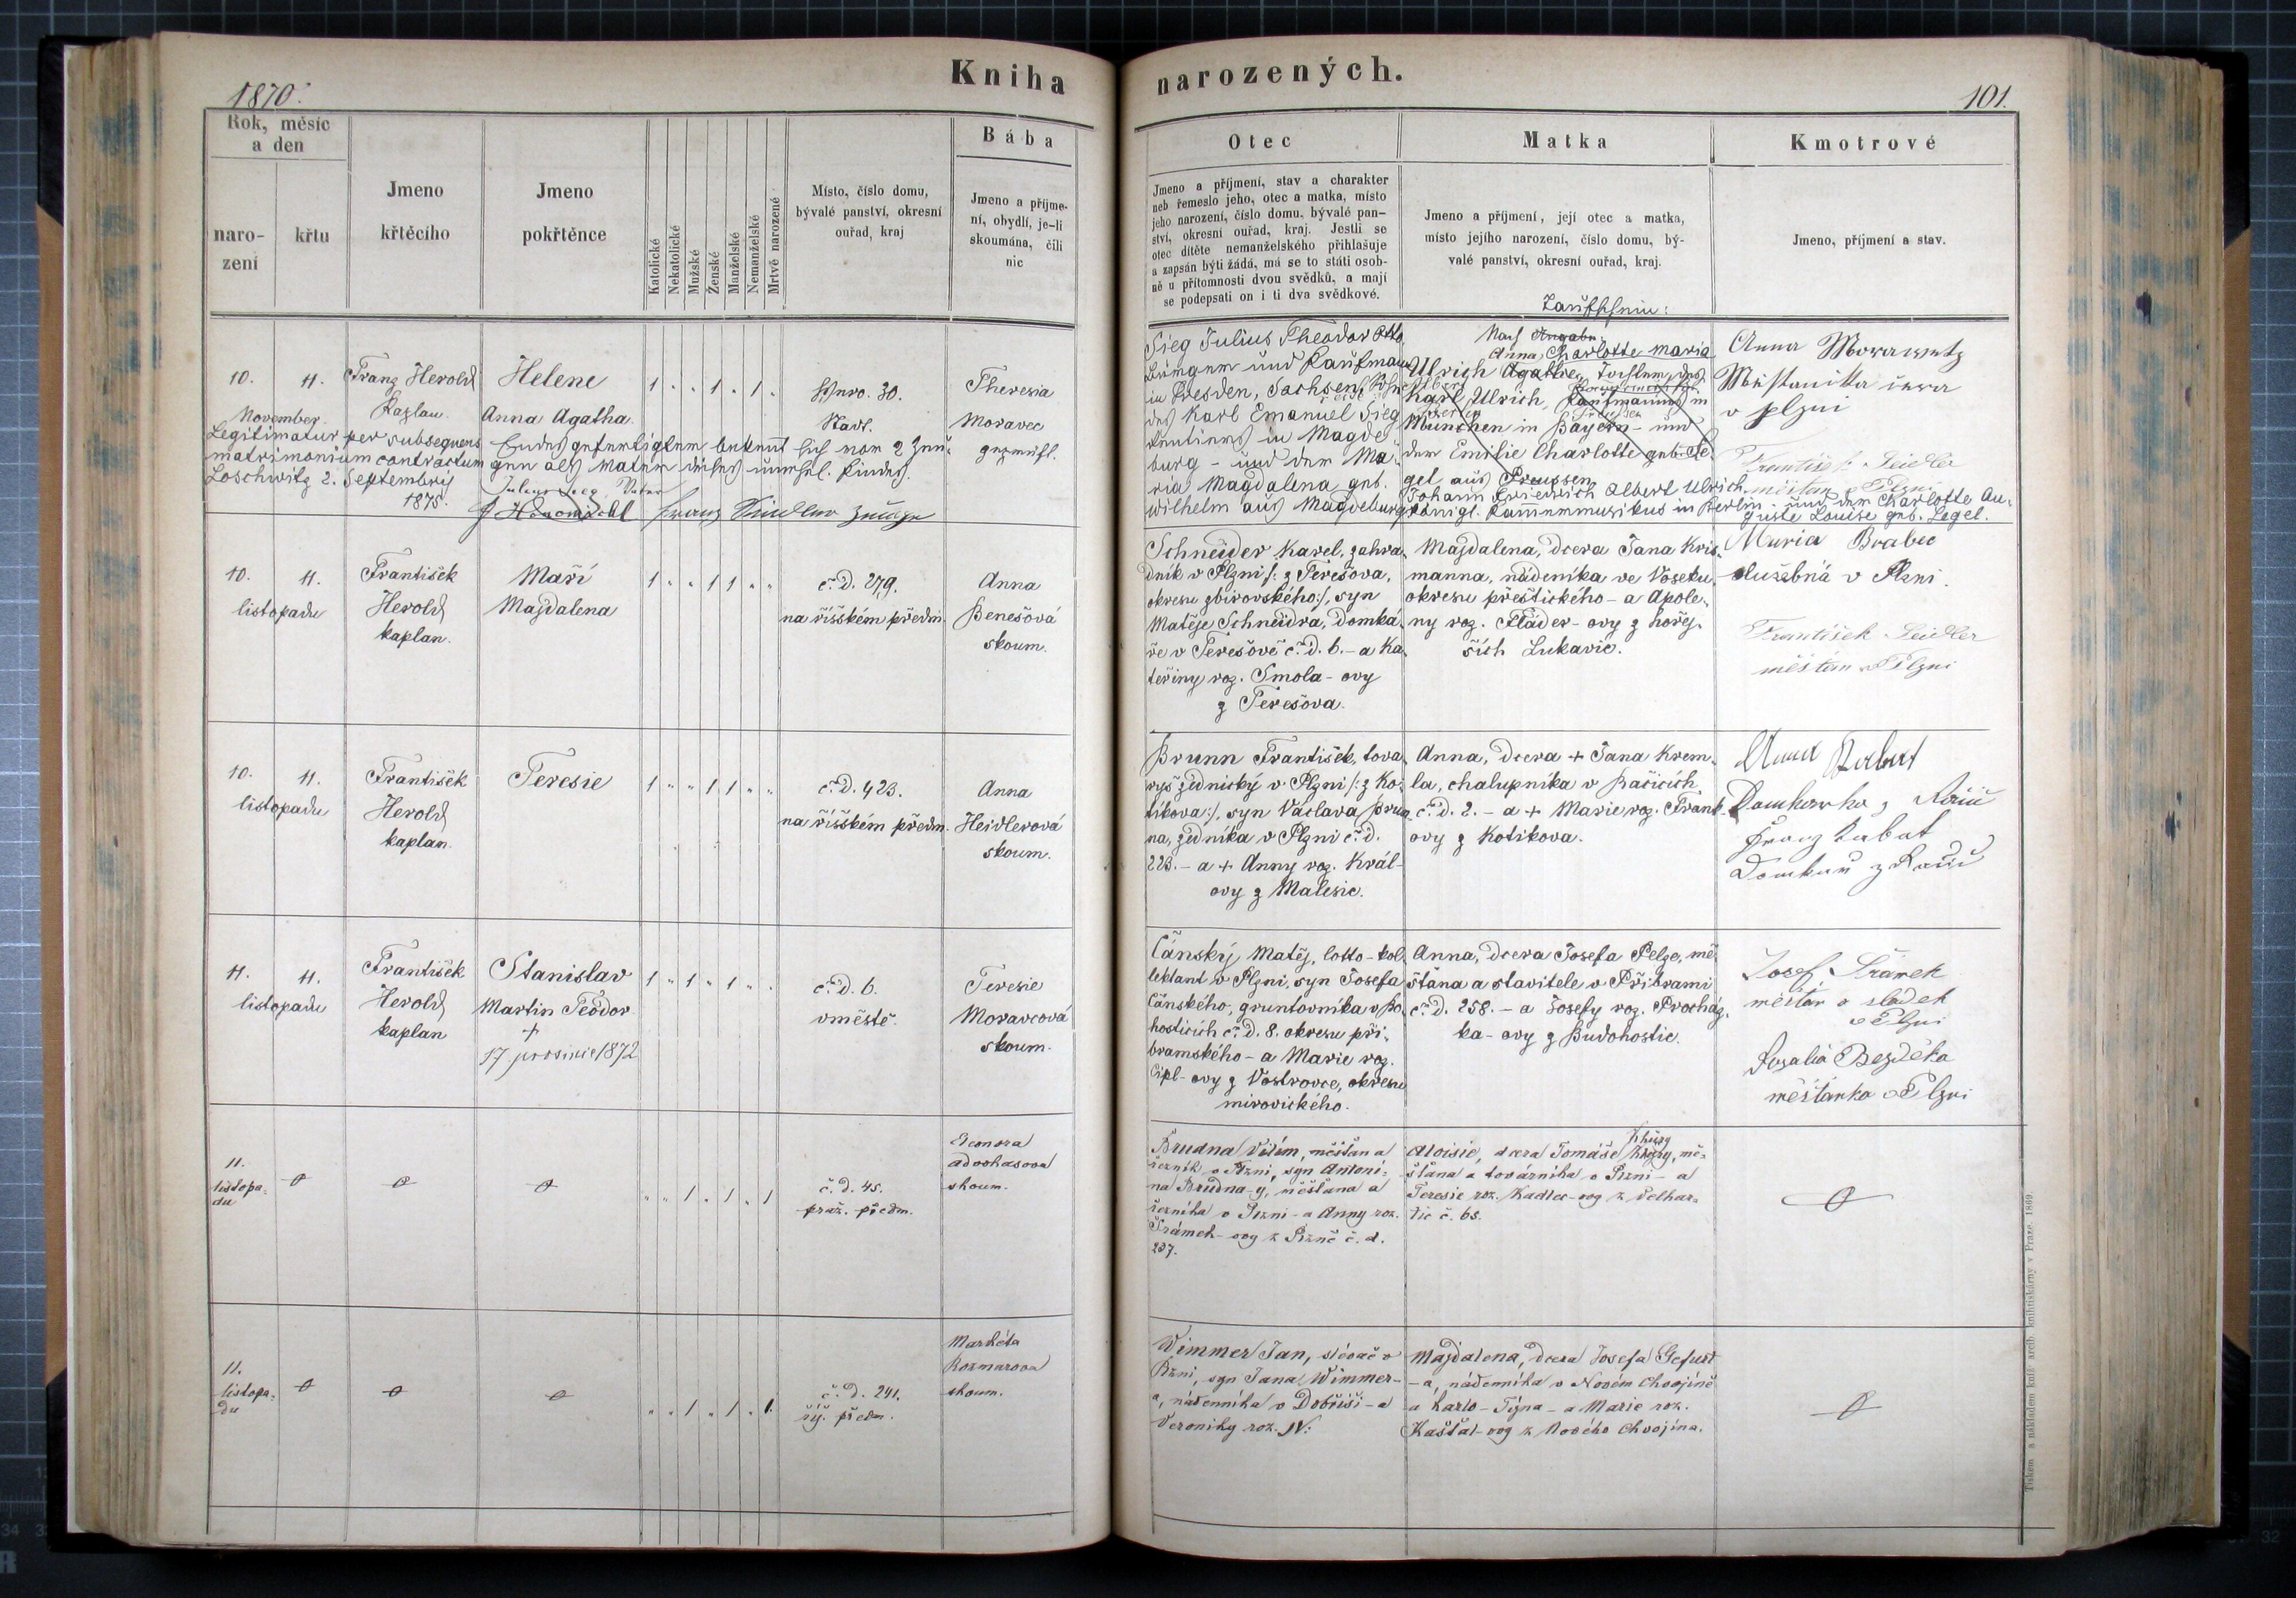 Kniha narozených.
1870.
101.
Rok, měsíc
a den
naro-
zení
křtu
Jmeno
křtěcího
Jmeno
pokřtěnce
Katolické
Nekatolické
Mužské
Ženské
Manželské
Nemanželské
Mrtvě narozené
Místo, číslo domu,
bývalé panství, okresní
ouřad, kraj
Bába
Jmeno a příjme-
ní, obydlí, je-li
skoumána, čili
nic
Otec
Jmeno a příjmení, stav a charakter
neb řemeslo jeho, otec a matka, místo
jeho narození, číslo domu, bývalé pan-
ství, okresní ouřad, kraj. Jestli se
otec dítěte nemanželského přihlašuje
a zapsán býti žádá, má se to státi osob-
ně u přítomnosti dvou svědků, a mají
se podepsati on i ti dva svědkové.
Matka
Jmeno a příjmení, její otec a matka,
místo jejího narození, číslo domu, bý-
valé panství, okresní ouřad, kraj.
Kmotrové
Jmeno, příjmení a stav.
Taufschein:
10. 11.
November
Franz Herold
Kaplan
Helene
Anna Agatha
1 " " 1 " 1 "
nro. 30.
Stadt.
Theresia
Moravec
geprüft.
Legitimatur per subsequens
matrimonium contractum
Loschwitz 2. Septembris
1875.
Endesgefertigter bekennt sich vor 2 Zeu-
gen als Vater dieses unehel. Kindes.
Julius Sieg, Vater
Franz Seidler Zeuge
Sieg Julius Theodor Otto
Bürger und Kaufmann
in Dresden, Sachsen, Sohn
des Karl Emanuel Sieg
Rentiers in Magde-
burg - und der Ma-
ria Magdalena geb.
Wilhelm aus Magdeburg
Nach Angabe
Anna Charlotte Maria
Ulrich Agathe, Tochter des
Karl Ulrich, Kaufmanns in
München in Bayern - und
der Emilie Charlotte geb. Se-
gel aus Preussen
Johann Friedrich Albert Ulrich,
königl. Kammermusikus in Berlin - und der Charlotte Au-
guste Louise geb. Legel.
Anna Morawetz
v plzni
František Seidler
měšťan v Plzni
10. 11.
listopadu
František
Herold
kaplan.
Maří
Majdalena
1 " " 1 1 " "
č. D. 279.
na říšském předm.
Anna
Benešová
skoum.
Schneider Karel, zahra-
dník v Plzni /: z Terešova,
okresu zbirovského :/, syn
Matěje Schneidra, domká-
ře v Terešově č. D. 6. - a Ka-
teřiny roz. Smola - ovy
z Terešova.
Majdalena, dcera Jana Kris-
manna, nádeníka ve Voseku,
okresu přeštického - a Apole-
ny roz. Fläder - ovy z hořej-
ších Lukavic.
Maria Brabec
služebná v Plzni.
František Seidler
měšťan v Plzni
10. 11.
listopadu
František
Herold
kaplan.
Teresie
1 " " 1 1 " "
č. D. 423.
na říšském předm.
Anna
Heidlerová
skoum.
Brunn František, tova-
ryš zednický v Plzni /: z Ko-
tikova :/, syn Václava Brun-
na, zedníka v Plzni č. D.
223. - a + Anny roz. Král-
ovy z Malesic.
Anna, dcera + Jana Krem-
la, chalupníka v Račicích
č. D. 2. - a + Marie roz. Frank-
ovy z Kotikova.
11. 11.
listopadu
František
Herold
kaplan
Stanislav
Martin Teodor
+
17. prosince 1872
1 " 1 " 1 " "
č. D. 6.
v městě.
Teresie
Moravcová
skoum.
Čánský Matěj, lotto-kol-
lektant v Plzni, syn Josefa
Čánského, gruntovníka v Bo-
hosticích č. D. 8. okresu pří-
bramského - a Marie roz.
Cipl - ovy z Vostrovce, okresu
mirovického.
Anna, dcera Josefa Pelze, mě-
šťana a stavitele v Příbrami
č. D. 258. - a Josefy roz. Procház-
ka - ovy z Budohostic.
Josef Šrámek
měšťan a sládek
v Plzni
Rosalia Bezděka
měšťanka v Plzni
11.
listopa-
du
" " 1 " 1 " 1
č. d. 45.
praž. předm.
Eleonora
skoum.
Brudna Vilém, měšťan a
řezník v Plzni, syn Antoní-
na Brudna-y, měšťana a
řezníka v Plzni - a Anny roz.
Šrámek - ovy z Plzně č. d.
237.
Aloisie, dcera Tomáše, mě-
šťana a továrníka v Plzni - a
Teresie roz. Kadlec - ovy z Velhar-
tic č. 65.
11.
listopa-
du
" " 1 " 1 " 1
č. D. 241.
říš. předm.
Markéta
Rozmarova
skoum.
Wimmer Jan, slévač v
Plzni, syn Jana Wimmer-
a, nádenníka v Dobříši - a
Veroniky roz. N:
Majdalena, dcera Josefa Gefurt
-a, nádenníka v Novém Chvojíně
a Karlo-Týna - a Marie roz.
Kaštal - ovy z Nového Chvojína.
Tiskem a nákladem kníž. arcib. knihtiskárny v Praze. 1869.
34
32